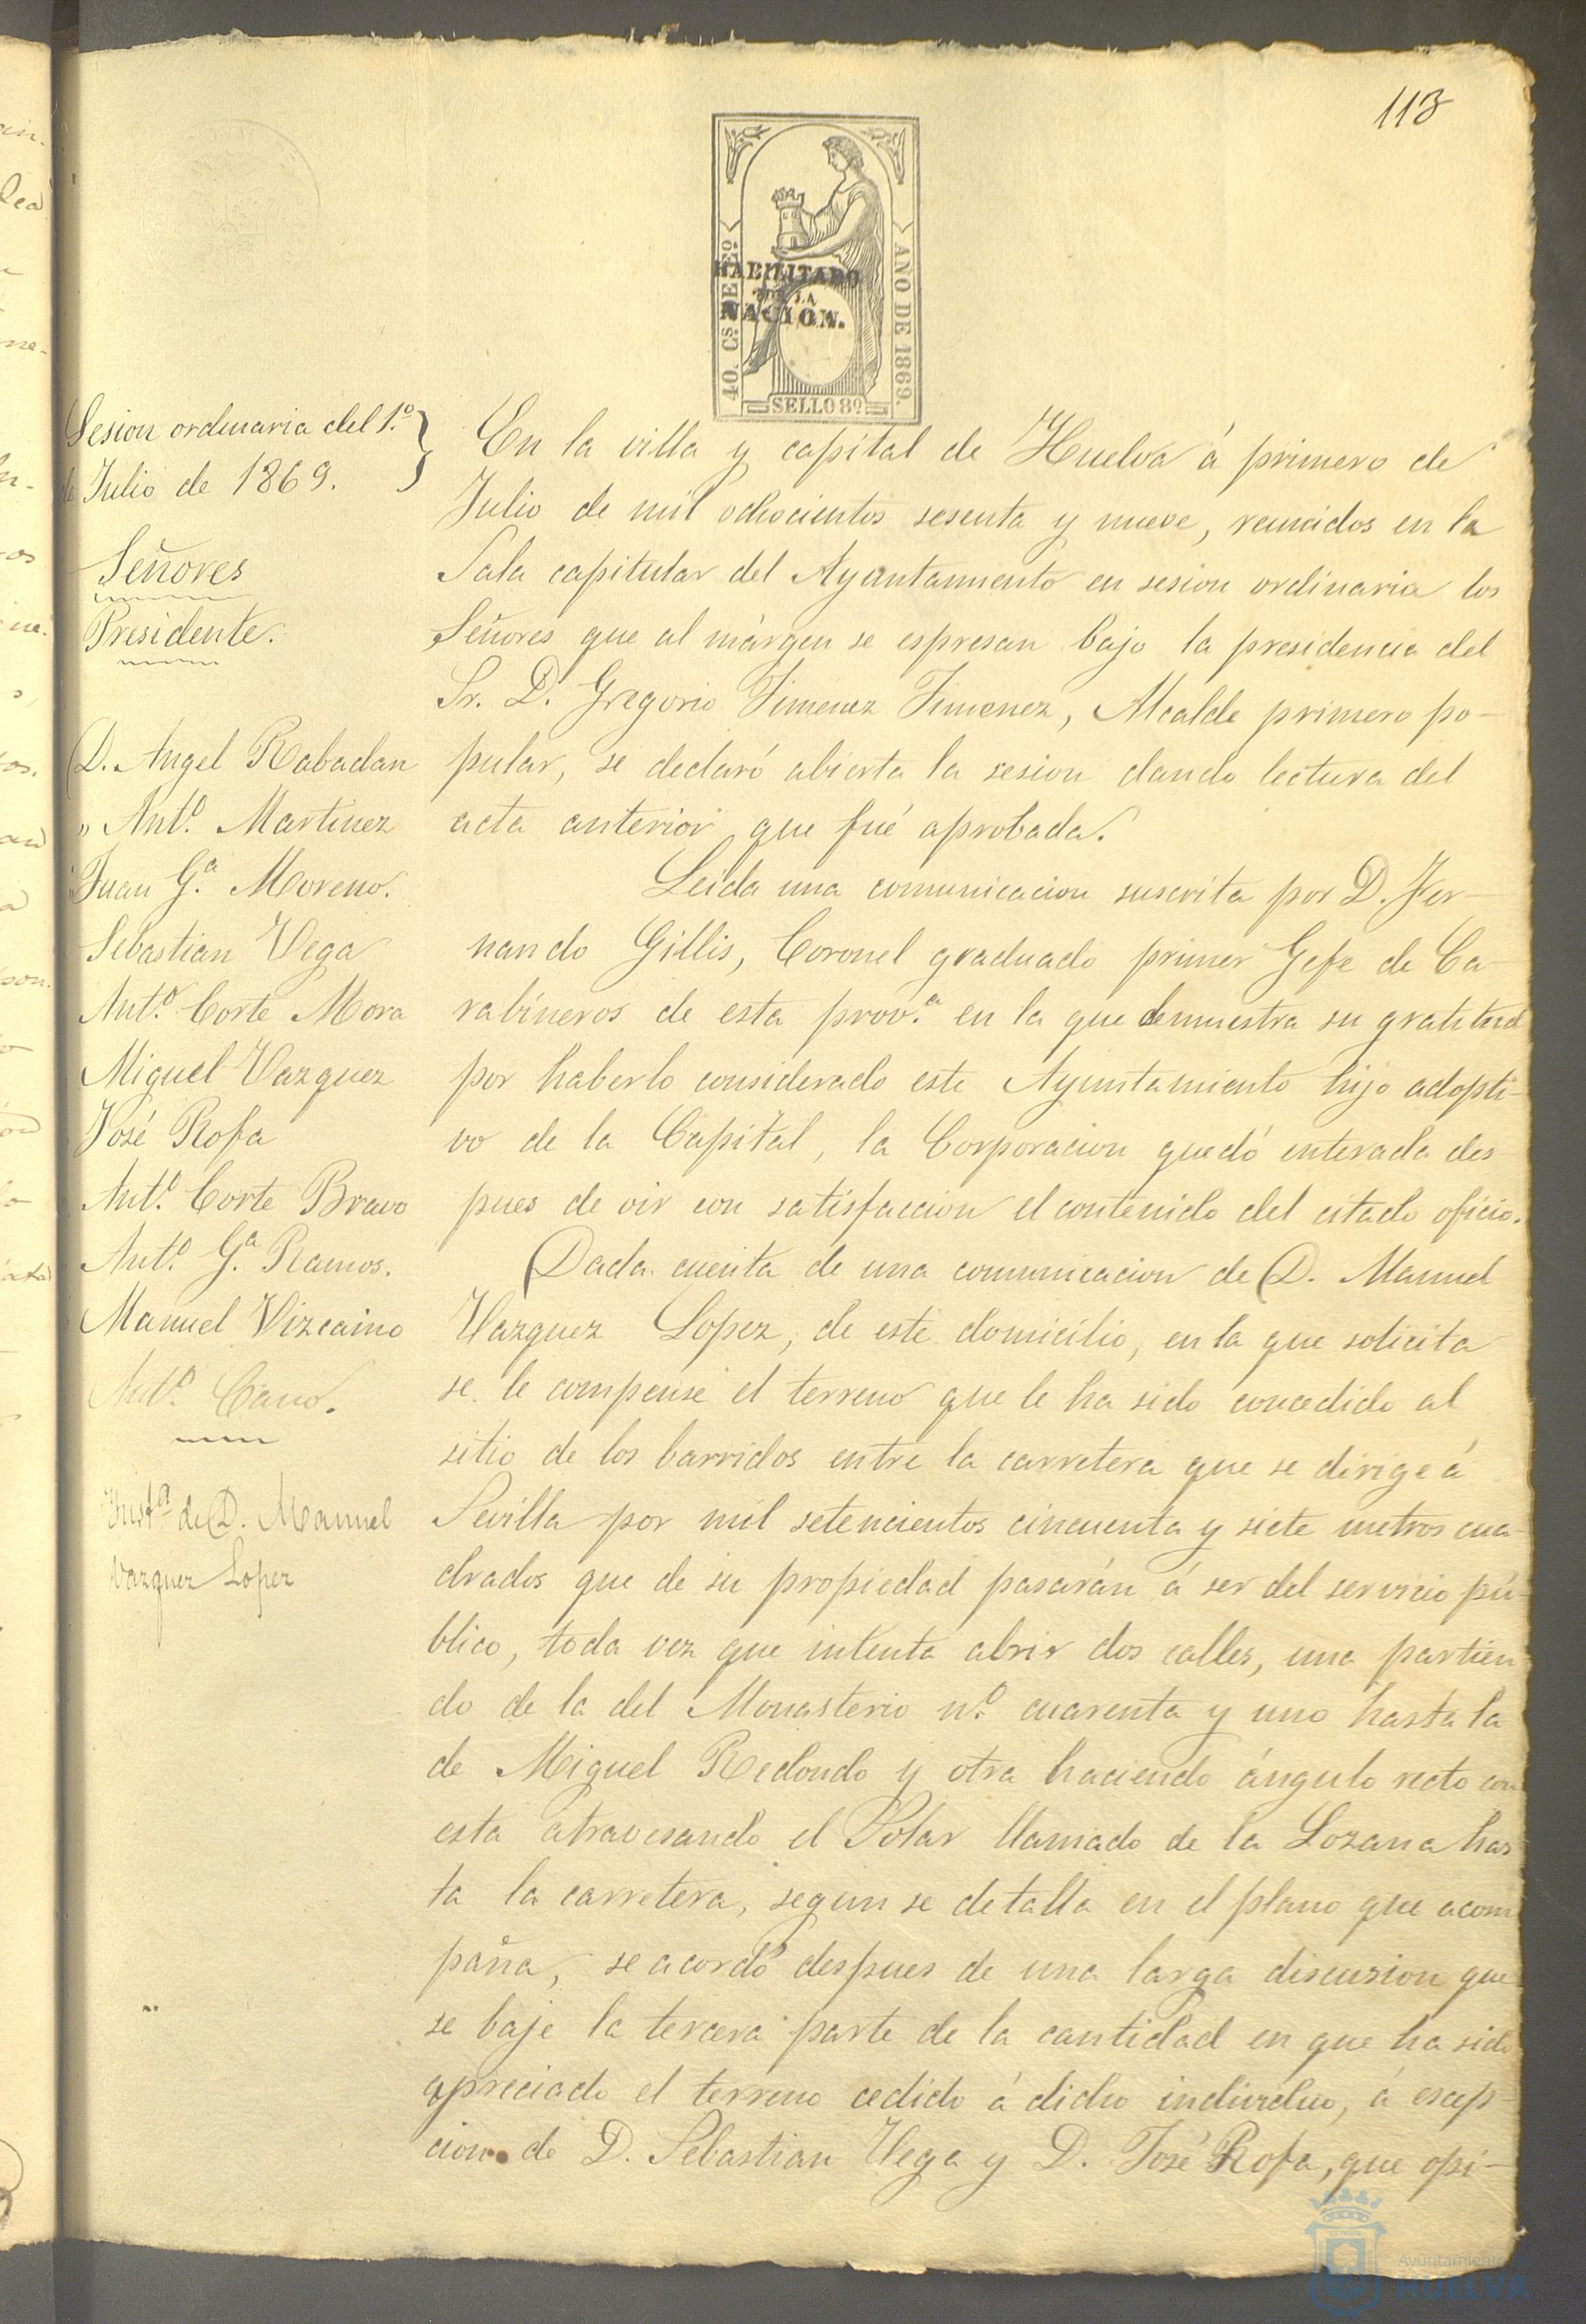 113
40. Cs. DE Eo.
AÑO DE 1869.
HABILITADO
POR LA
NACION.
SELLO 8º
Sesion ordinaria del 1.º
de Julio de 1869.
Señores
Presidente.
D. Angel Rabadan
" Ant.º Martinez
Juan G.ª Moreno.
Sebastian Vega
Ant.º Corte Mora
Miguel Vazquez
José Rofa
Ant.º Corte Bravo
Ant.º G.ª Ramos.
Manuel Vizcaino
Ant.º Cano.
Inst.ª de D. Manuel
Vazquez Lopez
En la villa y capital de Huelva á primero de
Julio de mil ochocientos sesenta y nueve, reunidos en la
Sala capitular del Ayuntamiento en sesion ordinaria los
Señores que al márgen se espresan bajo la presidencia del
Sr. D. Gregorio Jimenez Jimenez, Alcalde primero po-
pular, se declaró abierta la sesion dando lectura del
acta anterior que fué aprobada.
Leida una comunicacion suscrita por D. Fer-
nando Gillis, Coronel graduado primer Gefe de Ca-
rabineros de esta prov.ª en la que demuestra su gratitud
por haberlo considerado este Ayuntamiento hijo adopti-
vo de la Capital, la Corporacion quedó enterada des
pues de oir con satisfaccion el contenido del citado oficio.
Dada cuenta de una comunicacion de D. Manuel
Vazquez Lopez, de este domicilio, en la que solicita
se le compense el terreno que le ha sido concedido al
sitio de los barridos entre la carretera que se dirige á
Sevilla por mil setencientos cincuenta y siete metros cua-
drados que de su propiedad pasarán á ser del servicio pú-
blico, toda vez que intenta abrir dos calles, una partien
do de la del Monasterio n.º cuarenta y uno hasta la
de Miguel Redondo y otra haciendo ángulo recto con
esta atravesando el Solar llamado de la Lozana has
ta la carretera, segun se detalla en el plano que acom
paña, se acordó despues de una larga discusion que
se baje la tercera parte de la cantidad en que ha sido
apreciado el terreno cedido á dicho individuo, á escep-
cion de D. Sebastian Vega y D. José Rofa, que opi-
Ayuntamiento de
HUELVA